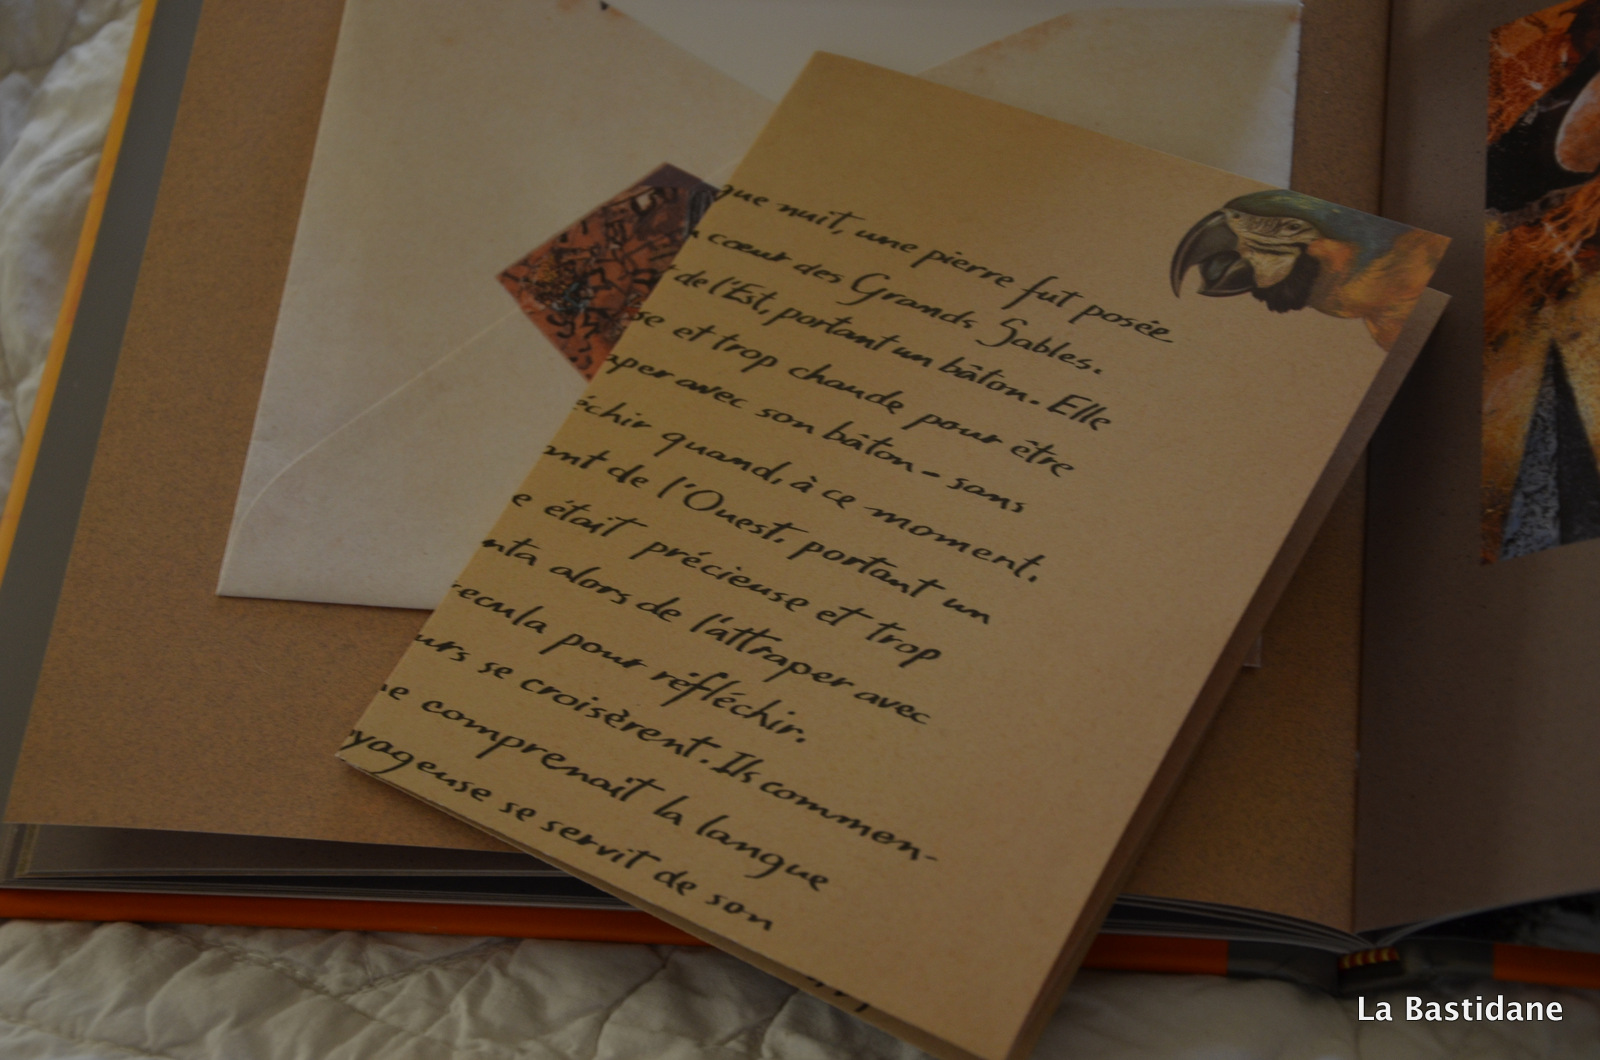 que nuit, une pierre fut posée
cœur des Grands Sables.
de l'Est, portant un bâton. Elle
se et trop chaude pour être
aper avec son bâton - sans
échir quand, à ce moment,
ant de l'Ouest, portant un
e était précieuse et trop
nta alors de l'attraper avec
recula pour réfléchir.
urs se croisèrent. Ils commen-
ne comprenait la langue
yageuse se servit de son
La Bastidane